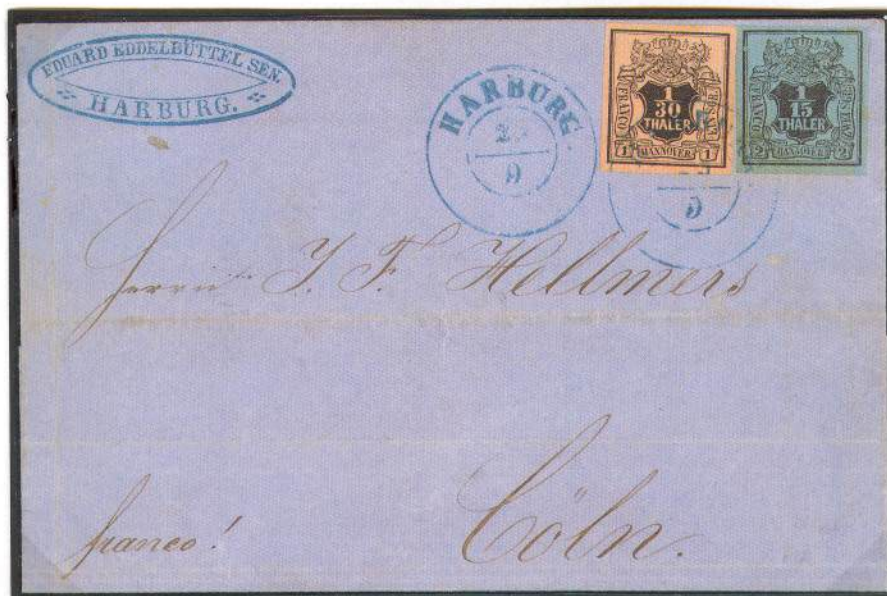 EDUARD EDDELBÜTTEL SEN.
HARBURG.
HARBURG.
9
FRANCO
1
30
THALER
1 HANNOVER 1
FRANCO
1
15
THALER
2 HANNOVER 2
9
Herrn J. F. Hellmers
Cöln.
franco!